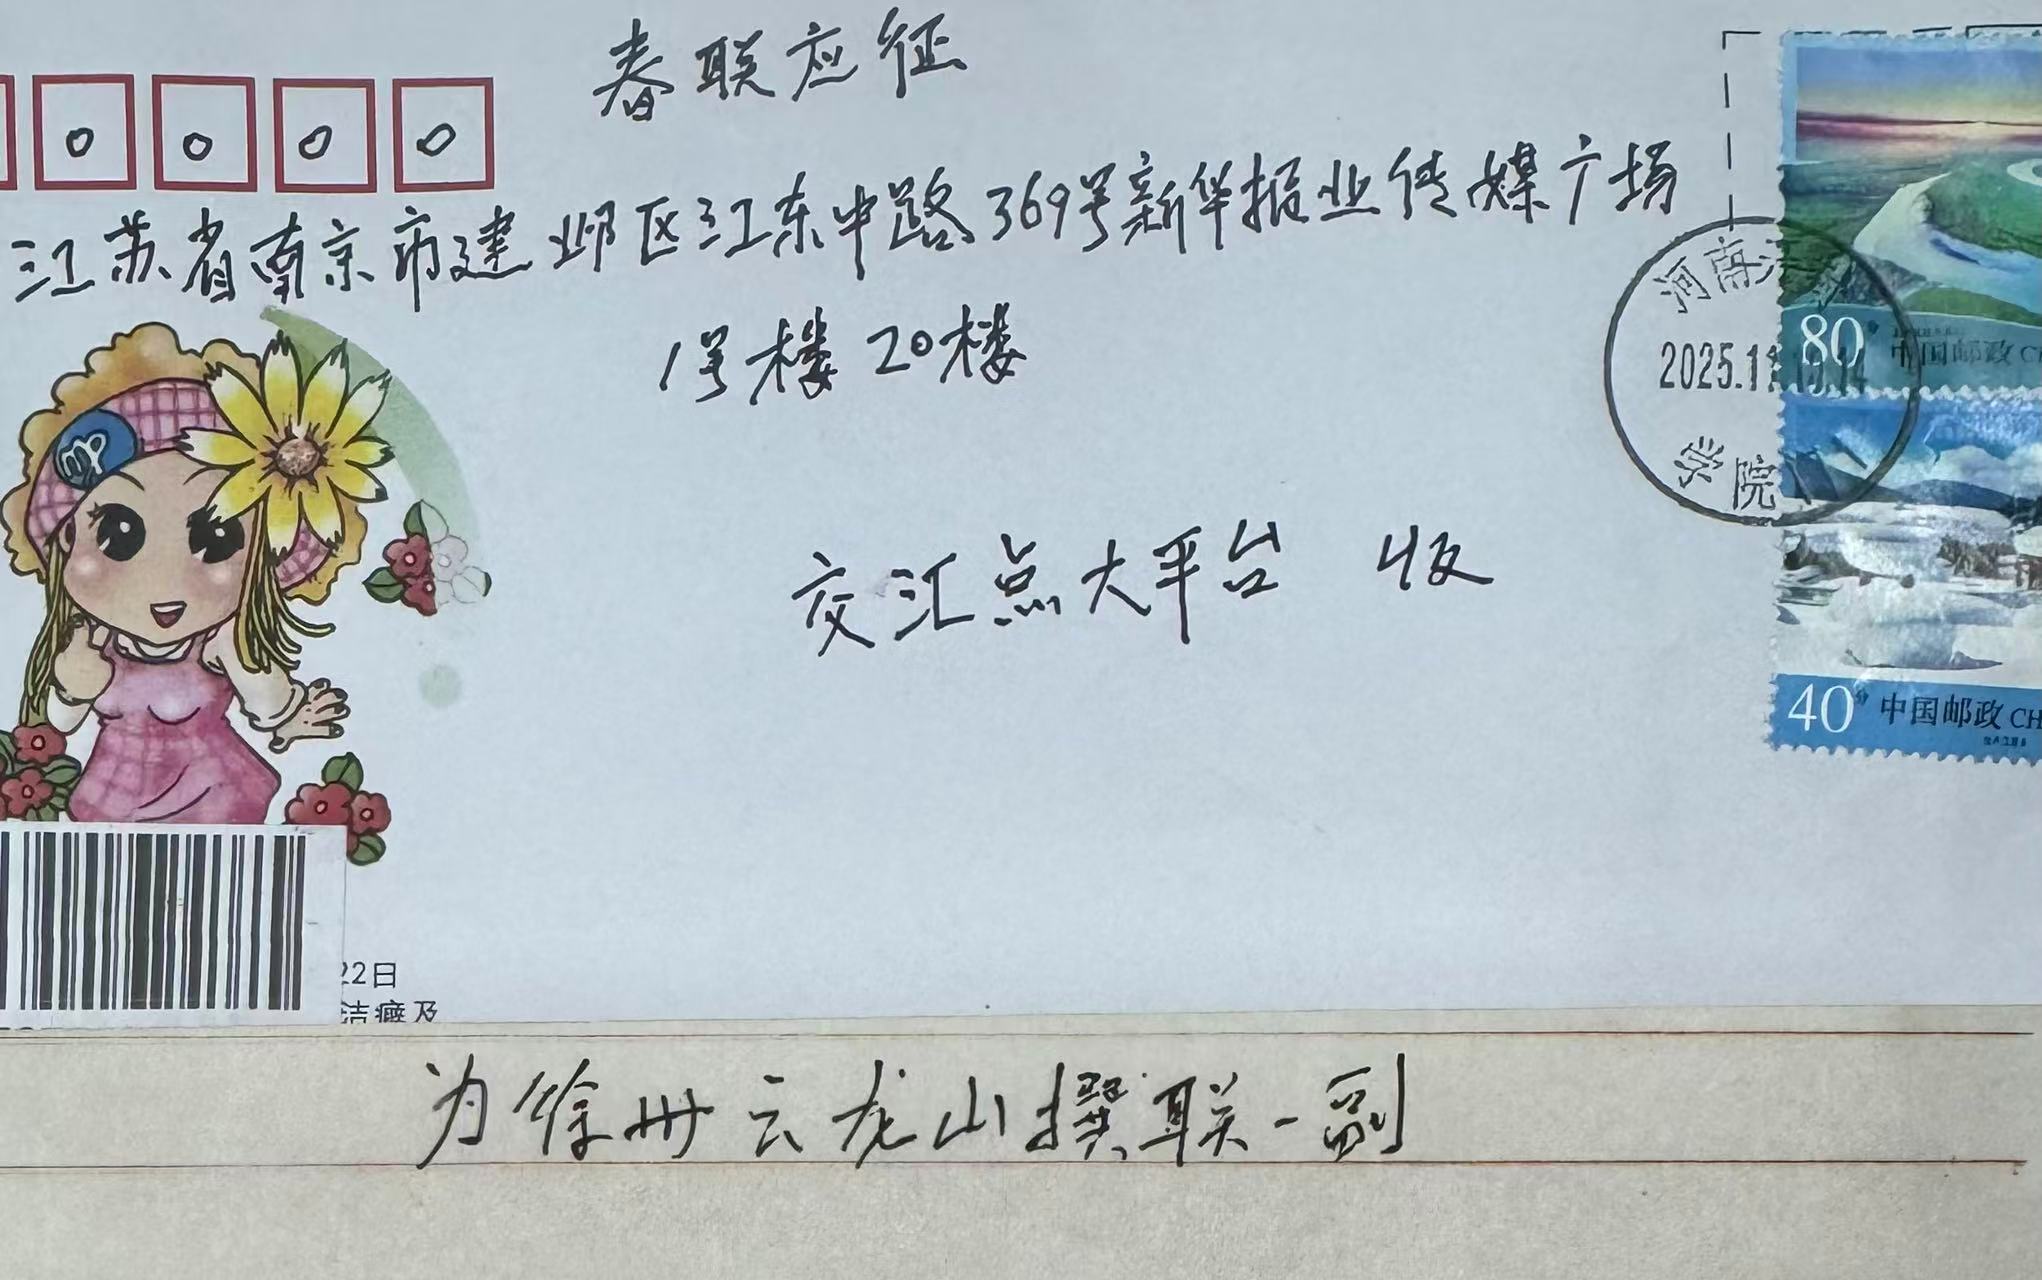 春联应征
0 0 0 0
江苏省南京市建邺区江东中路369号新华报业传媒广场
1号楼20楼
交汇点大平台 收
河南
2025.11
学院
80分 中国邮政
40分 中国邮政 CH
22日
洁癖及
为徐州云龙山撰联一副